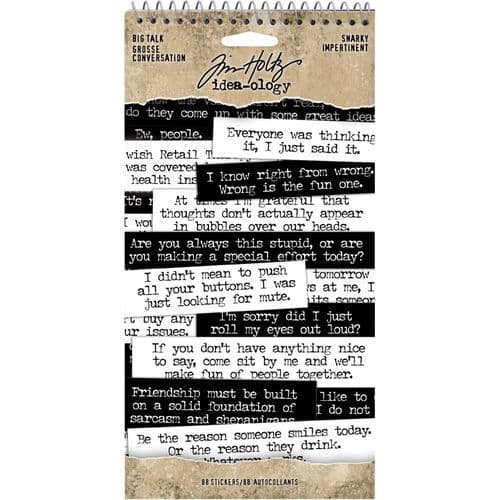 BIG TALK
GROSSE
CONVERSATION
SNARKY
IMPERTINENT
Tim Holtz
idea-ology
do they come up with some great ideas
Ew, people.
Everyone was thinking
it, I just said it.
wish Retail
was covered
health ins
I know right from wrong.
Wrong is the fun one.
It's
I wou
At times I'm grateful that
thoughts don't actually appear
in bubbles over our heads.
Are you always this stupid, or are
you making a special effort today?
I didn't mean to push
all your buttons. I was
just looking for mute.
tomorrow
s at me, I
its someon
't buy any
ur issues.
I'm sorry did I just
roll my eyes out loud?
If you don't have anything nice
to say, come sit by me and we'll
make fun of people together.
Friendship must be built
on a solid foundation of
sarcasm and shenanigans.
like to
I do not
Be the reason someone smiles today.
Or the reason they drink.
Whatever works.
88 STICKERS/88 AUTOCOLLANTS